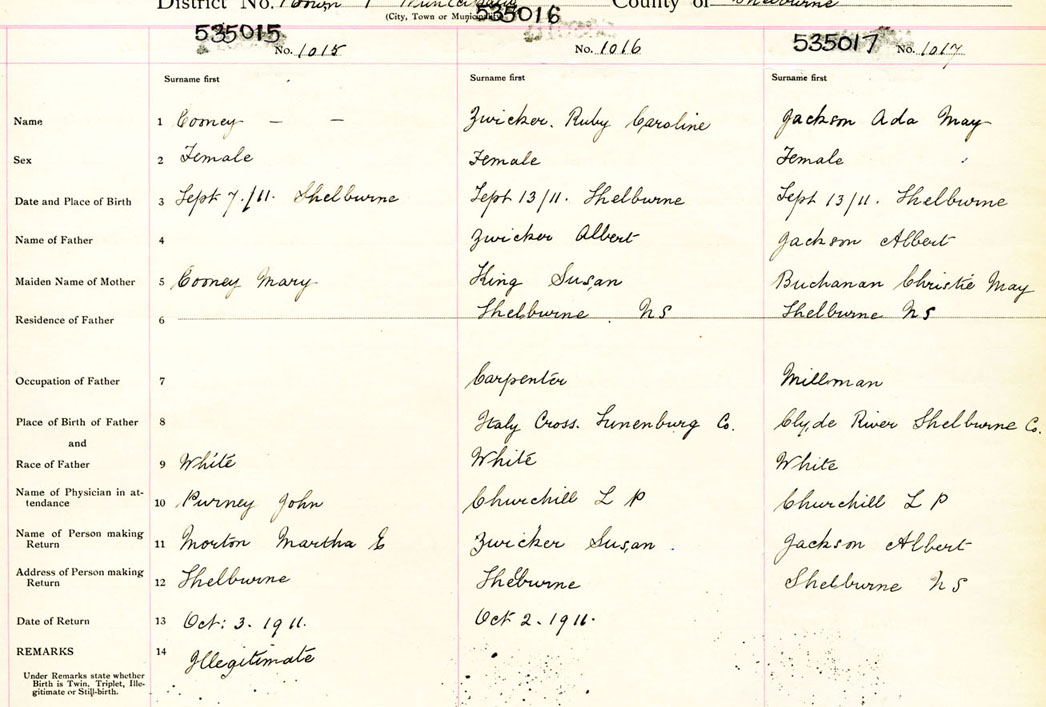 District No. Town Municipality County of Shelburne
(City, Town or Municipality)
535015 535016 535017
No. 1015 No. 1016 No. 1017
Surname first Surname first Surname first
Name 1 Cooney — — Zwicker. Ruby Caroline Jackson Ada May
Sex 2 Female Female Female
Date and Place of Birth 3 Sept 7./11. Shelburne Sept 13/11. Shelburne Sept 13/11. Shelburne
Name of Father 4 Zwicker Albert Jackson Albert
Maiden Name of Mother 5 Cooney Mary King Susan Buchanan Christie May
Residence of Father 6 Shelburne NS Shelburne NS
Occupation of Father 7 Carpenter Millman
Place of Birth of Father 8 Italy Cross. Lunenburg Co. Clyde River Shelburne Co.
and
Race of Father 9 White White White
Name of Physician in at-
tendance 10 Purney John Churchill L P Churchill L P
Name of Person making
Return 11 Morton Martha E Zwicker Susan Jackson Albert
Address of Person making
Return 12 Shelburne Shelburne Shelburne NS
Date of Return 13 Oct: 3. 1911. Oct 2. 1911.
REMARKS 14 Illegitimate
Under Remarks state whether
Birth is Twin, Triplet, Ille-
gitimate or Still-birth.